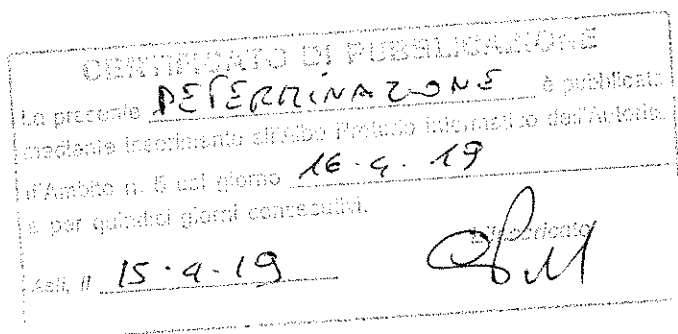 CERTIFICATO DI PUBBLICAZIONE
La presente DETERMINAZONE è pubblicata
mediante inserimento all'Albo Pretorio informatico dell'Autorità
d'Ambito n. 5 dal giorno 16.4.19
e per quindici giorni consecutivi.
L'Incaricato
Asti, il 15.4.19